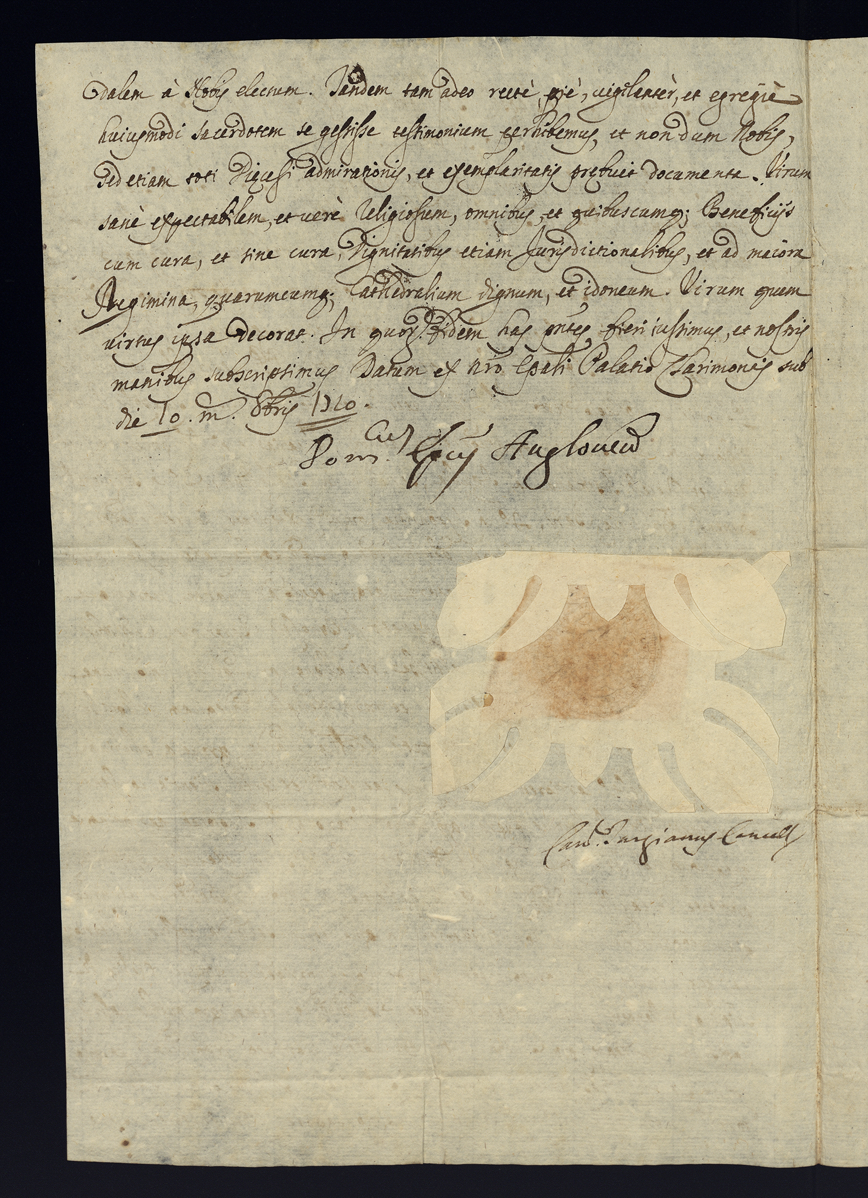 dalem à Nobis electum. Tandem tam adeo rectè, piè, vigilantèr, et egregiè
huiusmodi sacerdotem se gessisse testimonium perhibemus, et non dum Nobis,
sed etiam toti Dięcesi admirationis, et exemplaritatis prebuit documenta. Virum
sanè expectabilem, et verè Religiosum, omnibus, et quibuscumq; Beneficijs
cum cura, et sine cura, Dignitatibus etiam Jurisdictionalibus, et ad maiora
Regimina, quarumcumq; Cathedralium dignum, et idoneum. Virum quem
virtus ipsa decorat. In quor. fidem has pntes fieri iussimus, et nostris
manibus subscriptimus Datum ex nro Epali Palatio sub
die 10. m. 8bris 1710.
Dom.cus Epus
Cancell